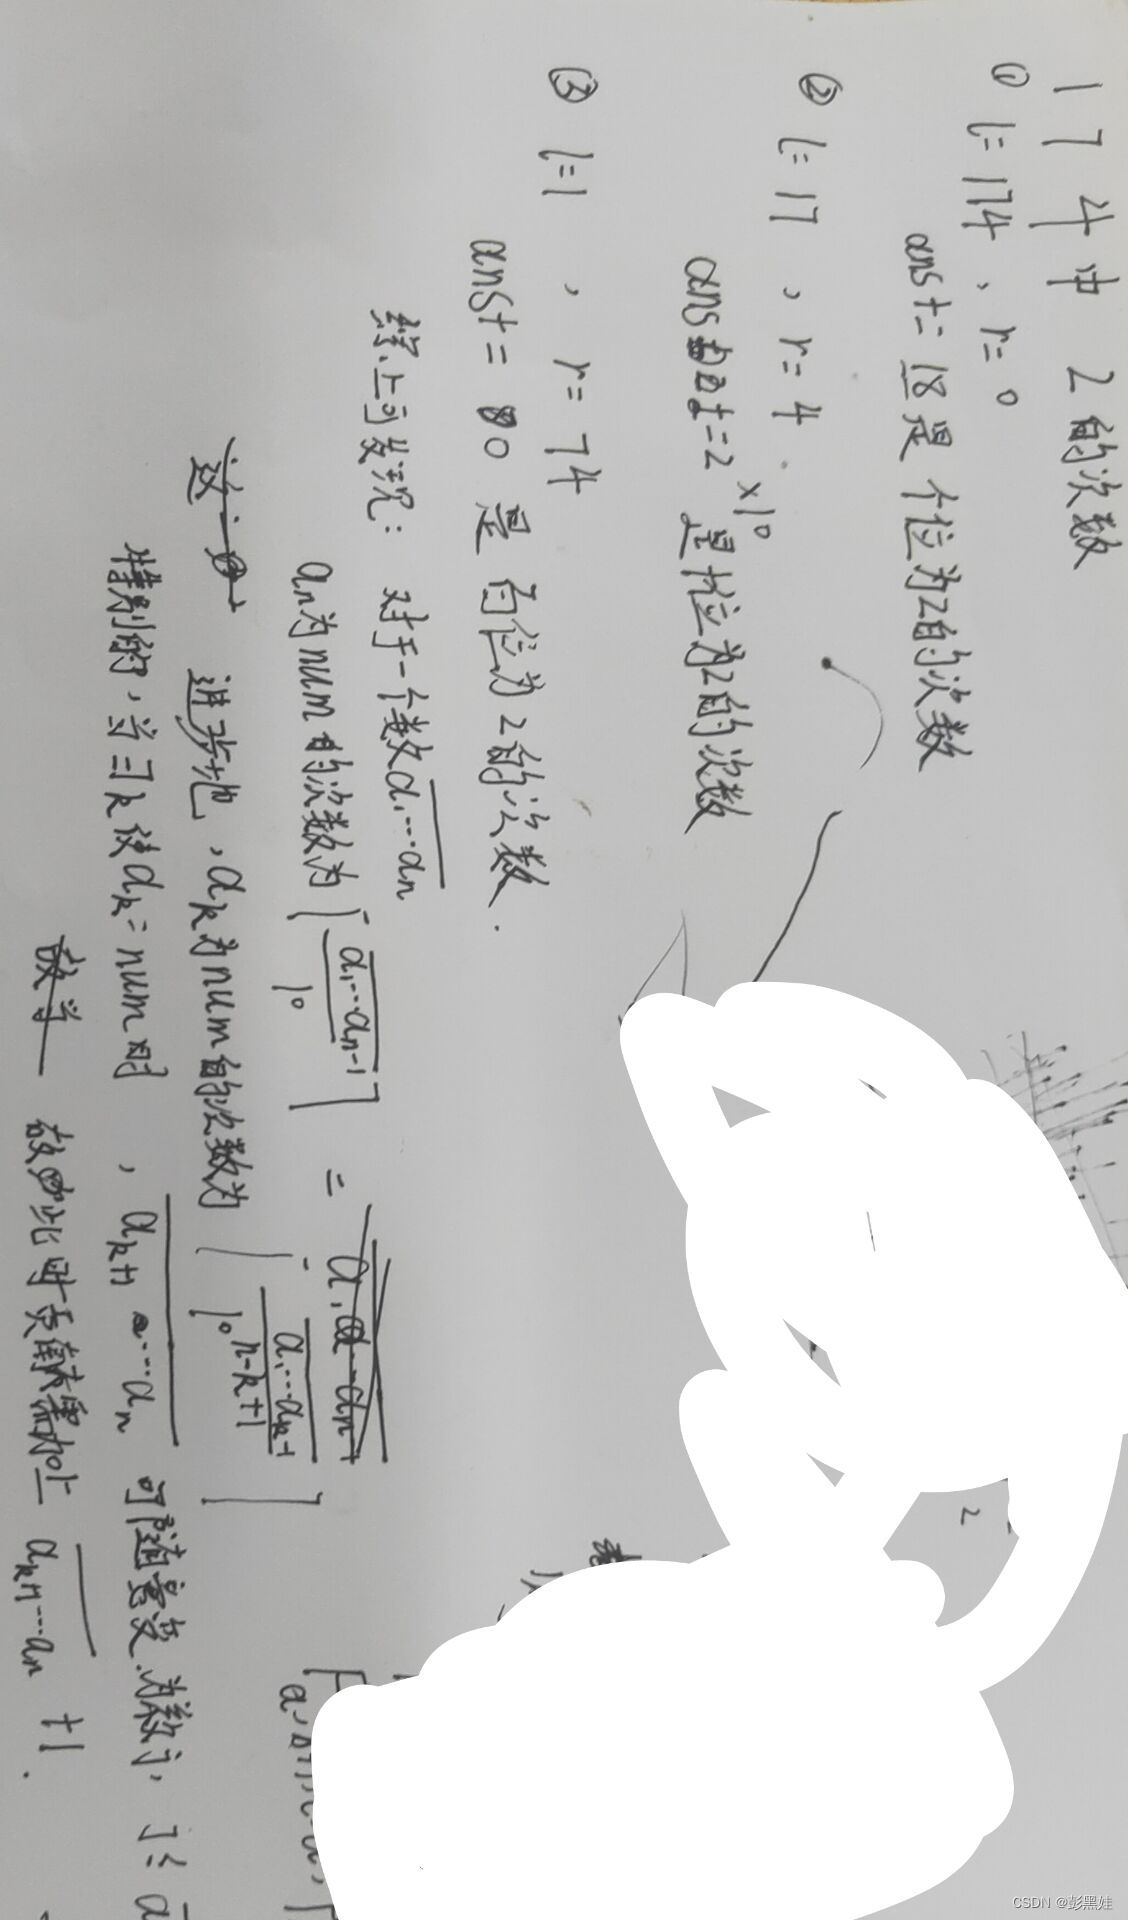 174中 2的次数
① l=174, r=0
ans += 18 是 个位为2的次数
② l=17, r=4
ans += 2×10 是十位为2的次数
③ l=1, r=74
ans += 0 是 百位为2的次数.
综上可发现: 对于一个数a₁…aₙ
aₙ为num的次数为 ⌈a₁…aₙ₋₁/10⌉ =
进步地, aₖ为num的次数为 ⌈a₁…aₖ₋₁/10ⁿ⁻ᵏ⁺¹⌉
特别的, 当∃k使aₖ=num时, aₖ₊₁…aₙ 可随意变.为数j, j≤
故此时 需加上 aₖ₊₁…aₙ +1.
CSDN @彭黑娃